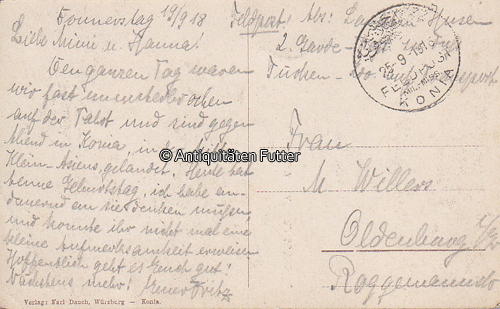 Donnerstag 19/9 18
Liebe Mimi u. Hanna!
Den ganzen Tag waren
wir fast ununterbrochen
auf der Fahrt und sind gegen
Abend in Konia, in der Mitte
Klein-Asiens, gelandet. Heute hat
Henne Geburtstag, ich habe an-
dauernd an sie denken müssen
und konnte ihr nicht mal eine
kleine Aufmerksamkeit erweisen
Hoffentlich geht es Euch gut!
Nächstens mehr! Euer Fritz
Verlag: Karl Dauch, Würzburg — Konia.
Feldpost Abs:
2. Garde
FELDPOST
MIL. MISS.
KONIA
© Antiquitäten Futter
Frau
M Willers
Oldenburg i/Gr
Roggemannstr